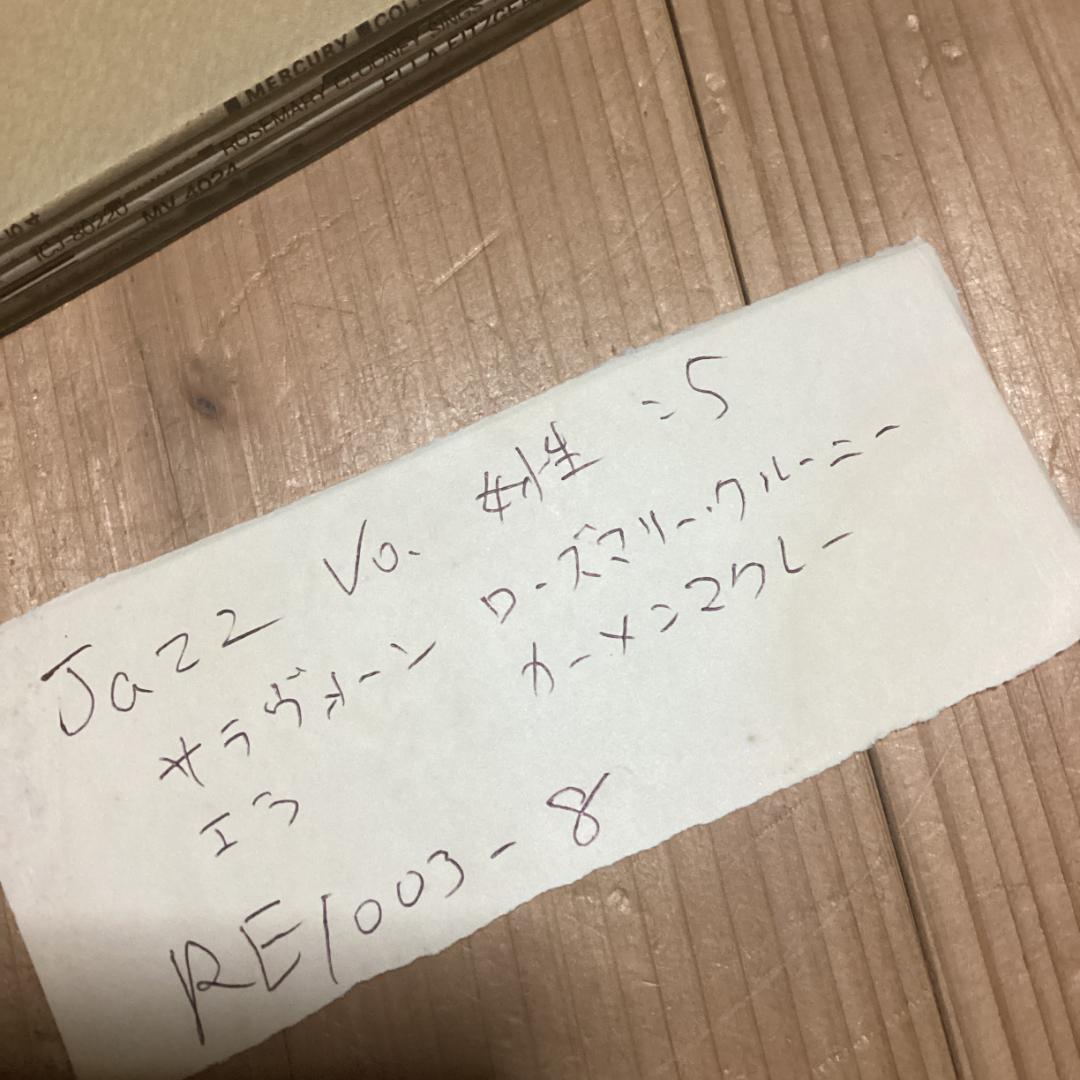 MERCURY ■COL
ROSEMARY CLOONEY SINGS
ELLA FITZGE
ICJ-80220
MV 4024
Jazz Vo. 女性 =5
サラヴォーン ローズマリー・クルーニー
エラ カーメンマクレー
RE1003-8